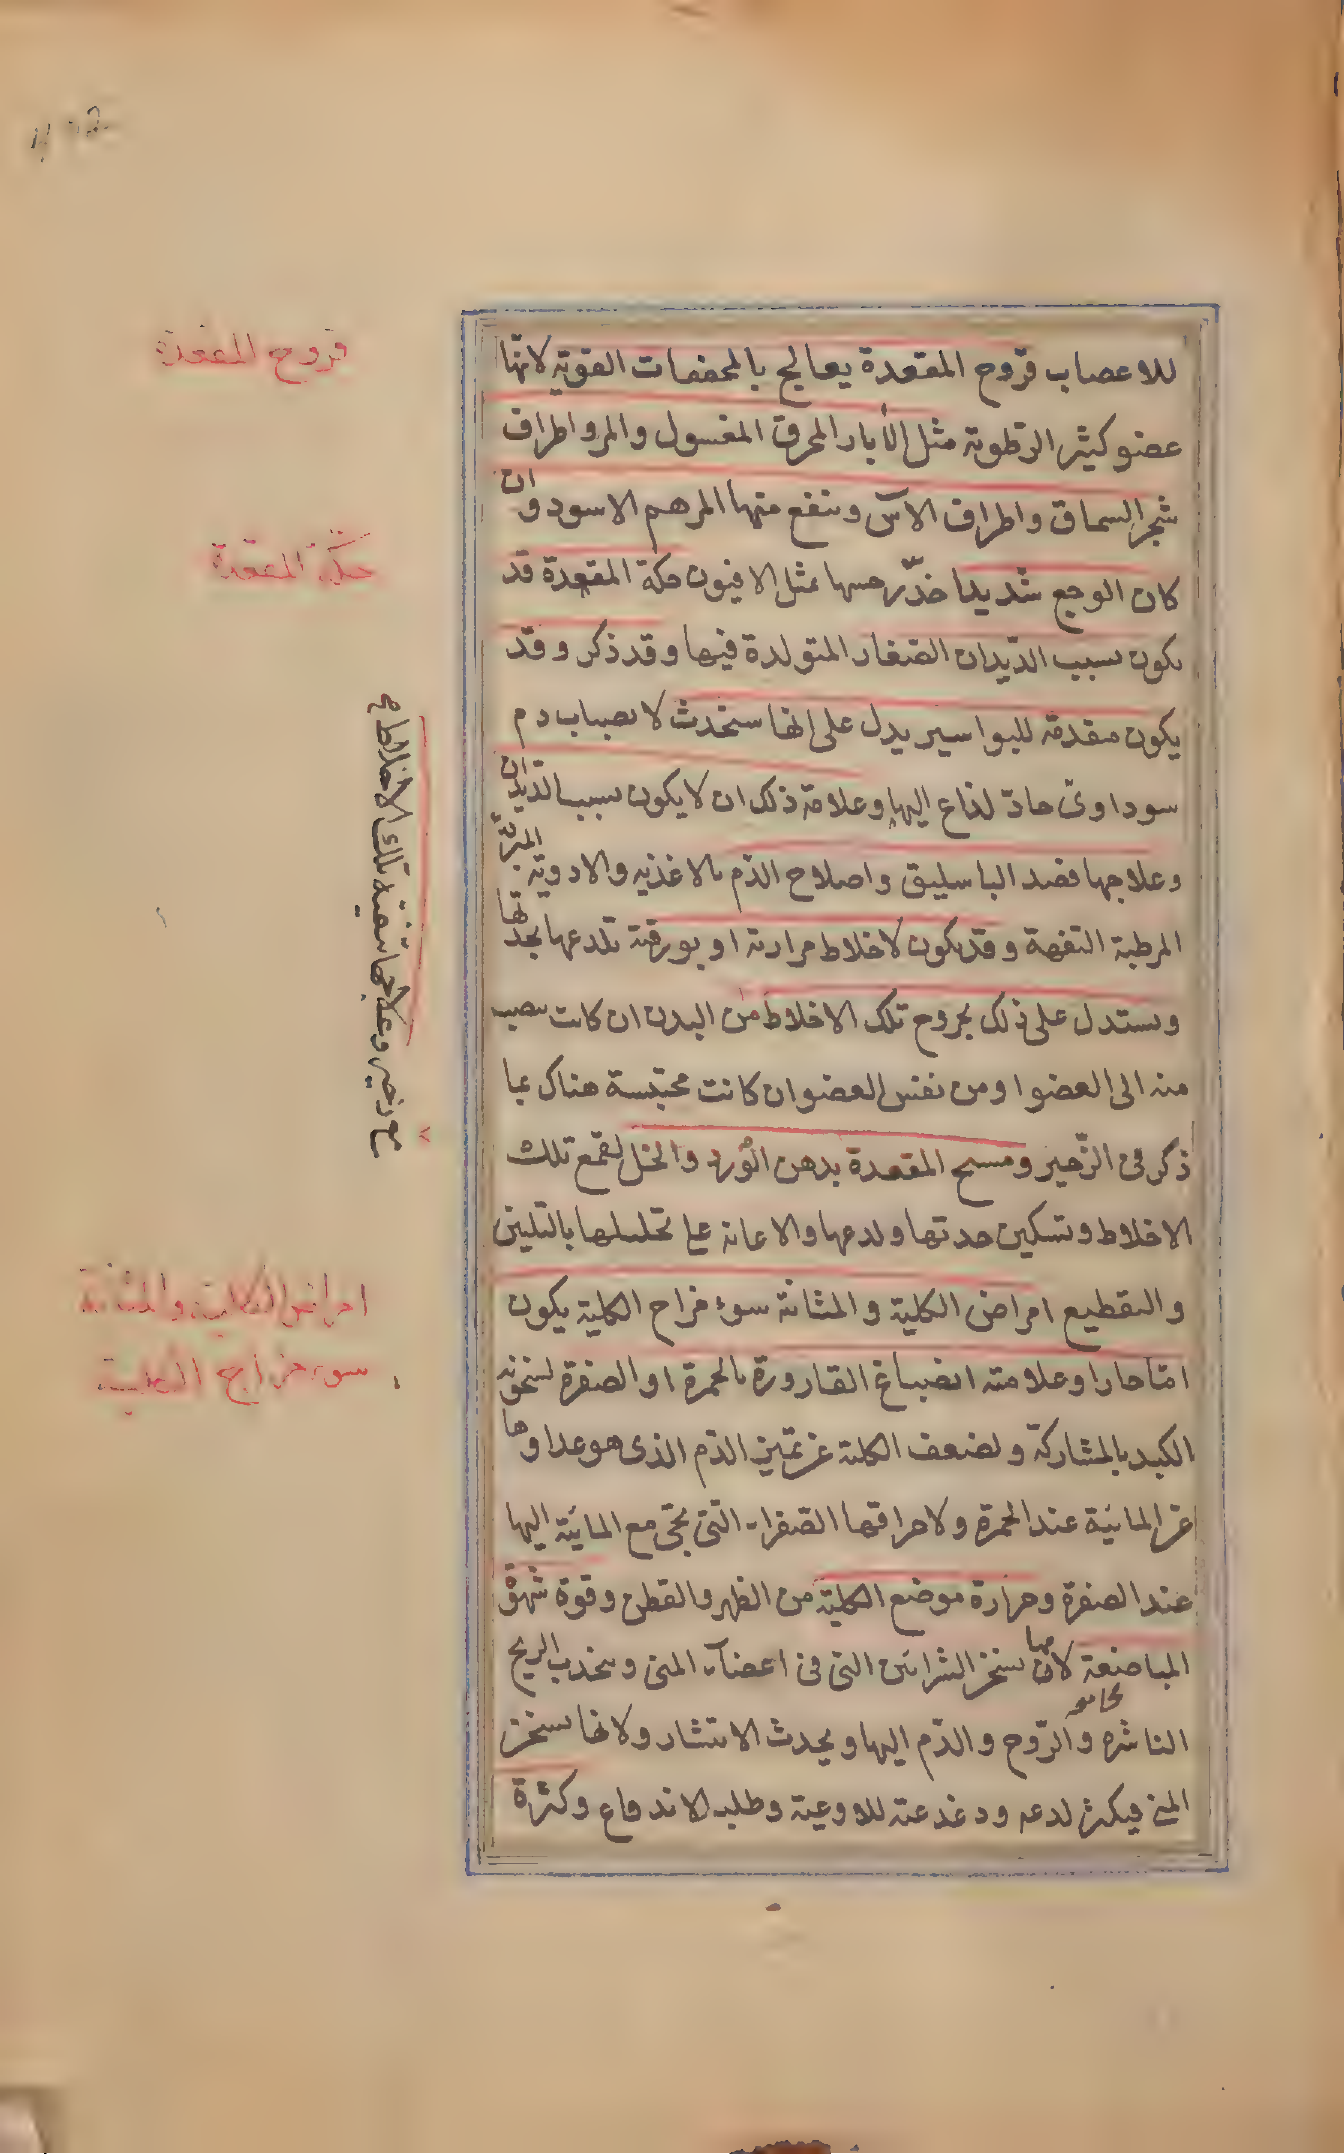 قروح المقعدة
للاعصاب قروح المقعدة يعالج بالمجففات القوية لانها
عضو كثير الرطوبة مثل الأبار المحرق المغسول والمر واطراف
شجر السماق واطراف الآس وينفع منها المرهم الاسود وان
حكة المقعدة
كان الوجع شديدا خدّر حسها بمثل الافيون حكة المقعدة قد
يكون بسبب الديدان الصغار المتولدة فيها وقد ذكر وقد
يكون مقدمة للبواسير يدل على انها ستحدث لانصباب دم
سوداوى حادّ لذاع اليها وعلامة ذلك ان لا يكون بسبب الديدان
وعلاجها فصد الباسليق واصلاح الدّم بالاغذيه والادوية المبردة
المرطبة التفهة وقد يكون لاخلاط مرارية او بورقية تلذعها بحدتها
ويستدل على ذلك بخروج تلك الاخلاط من البدن ان كانت تنصب
مع زحير وعلاجها تنقية تلك الاخلاط
منه الى العضو او من نفس العضو ان كانت محتبسة هناك بما
ذكر فى الزّحير ومسح المقعدة بدهن الورد والخل لقمع تلك
الاخلاط وتسكين حدتها ولذعها والاعانة على تحليلها بالتليين
امراض الكلية والمثانة
والتقطيع امراض الكلية والمثانة سوء مزاج الكلية يكون
سوء مزاج الكلية
امّا حارا وعلامته انصباغ القارورة بالحمرة او الصفرة لسخونة
الكبد بالمشاركة ولضعف الكلية عن تميز الدّم الذى هو غذاوها
عن المائية عند الحمرة ولاحراقها الصفراء التى تجئ مع المائية اليها
عند الصفرة وحرارة موضع الكلية من الظهر والقطن وقوة شهوة
المباضعة لانها تسخن الشرائين التى فى اعضاء المنى وينجذب الريح
الناشره والرّوح والدّم اليها ويحدث الانتشار ولانها تسخن
المنى فيكثر لذعه ودغدغته للاوعية وطلبه الاندفاع وكثرة